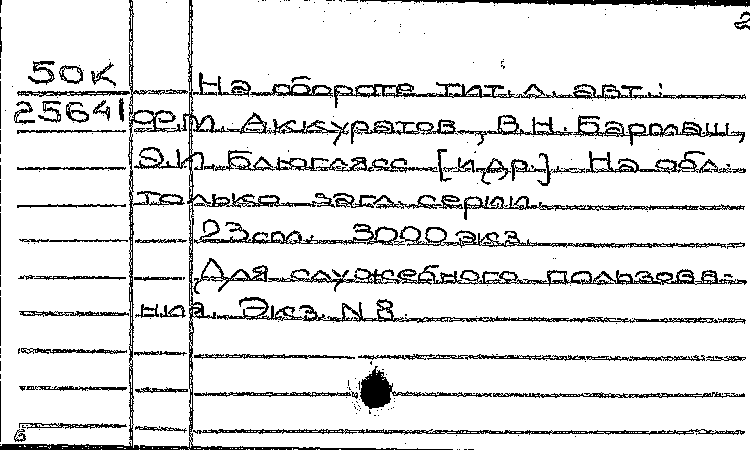 2
50К
На обороте тит. л. авт.:
25641
Ф.М. Аккуратов, В.Н. Бармаш,
Э.И. Блюглясс [и др.]. На обл.
только загл. серии.
23 см. 3000 экз.
Для служебного пользова-
ния. Экз. N 8.
6